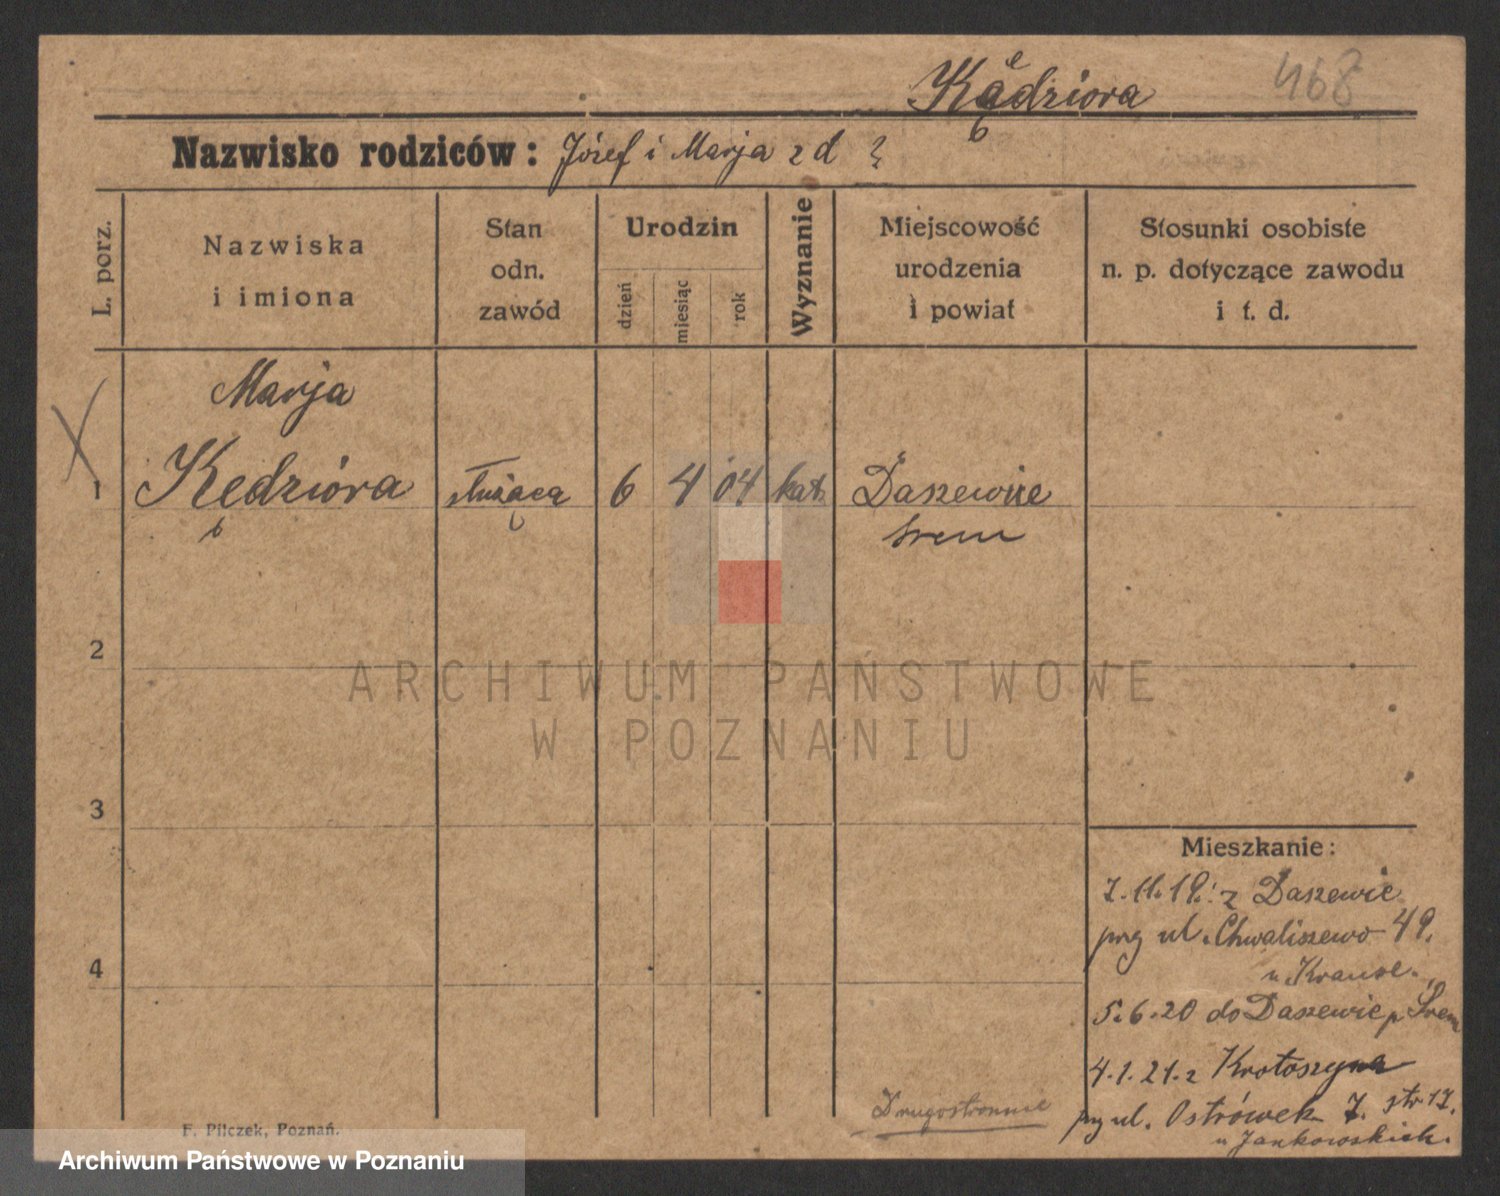 Kędziora
468
Nazwisko rodziców: Józef i Marja z d ?
L. porz.
Nazwiska
i imiona
Stan
odn.
zawód
Urodzin
dzień
miesiąc
rok
Wyznanie
Miejscowość
urodzenia
i powiat
Stosunki osobiste
n. p. dotyczące zawodu
i t. d.
Marja
1 Kędzióra służąca 6 4 04 kat. Daszewice
Śrem
2
3
4
ARCHIWUM PAŃSTWOWE
W POZNANIU
Mieszkanie:
7.11.19. z Daszewic
prz ul. Chwaliszewo 49.
u Krause.
5.6.20 do Daszewic p Śrem
4.1.21. z Krotoszyna
prz ul. Ostrówek 7. str 17.
u Jankowskich.
Drugostronnie
F. Pilczek, Poznań.
Archiwum Państwowe w Poznaniu